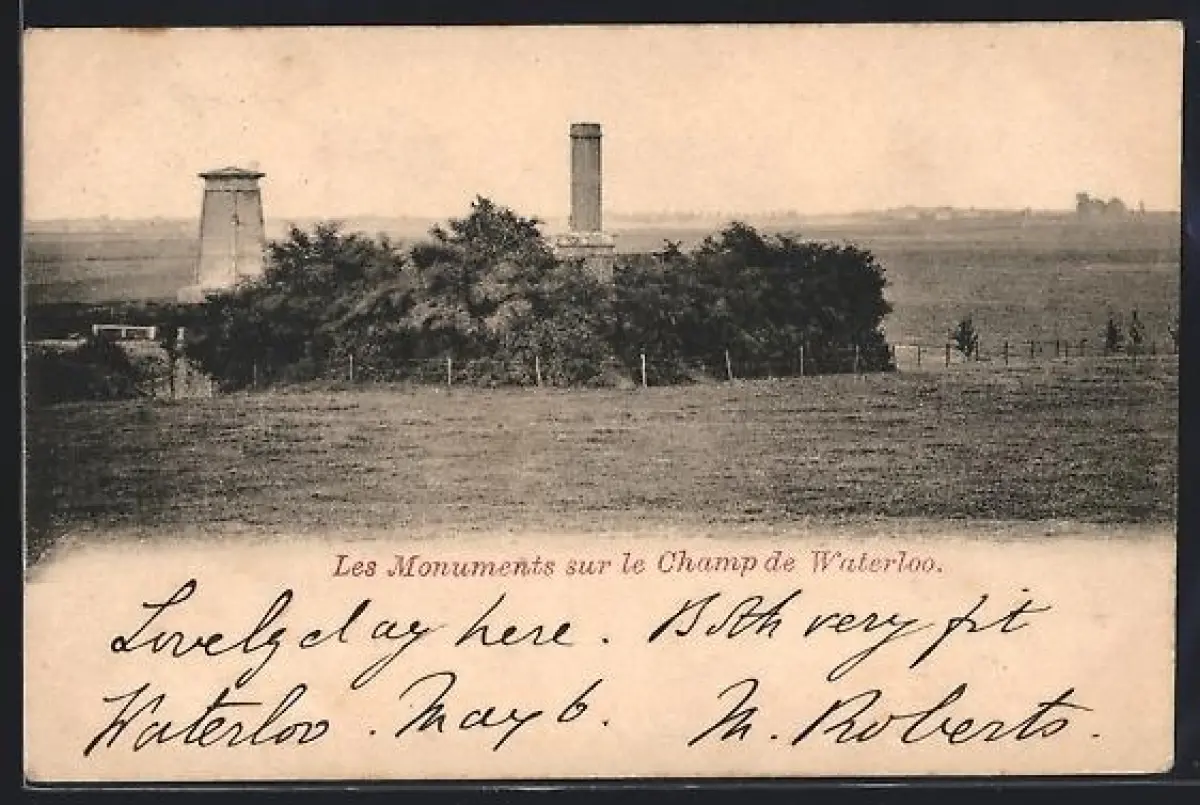 Les Monuments sur le Champ de Waterloo.
Lovely day here. Both very fit
Waterloo. May 6. M. Roberts.